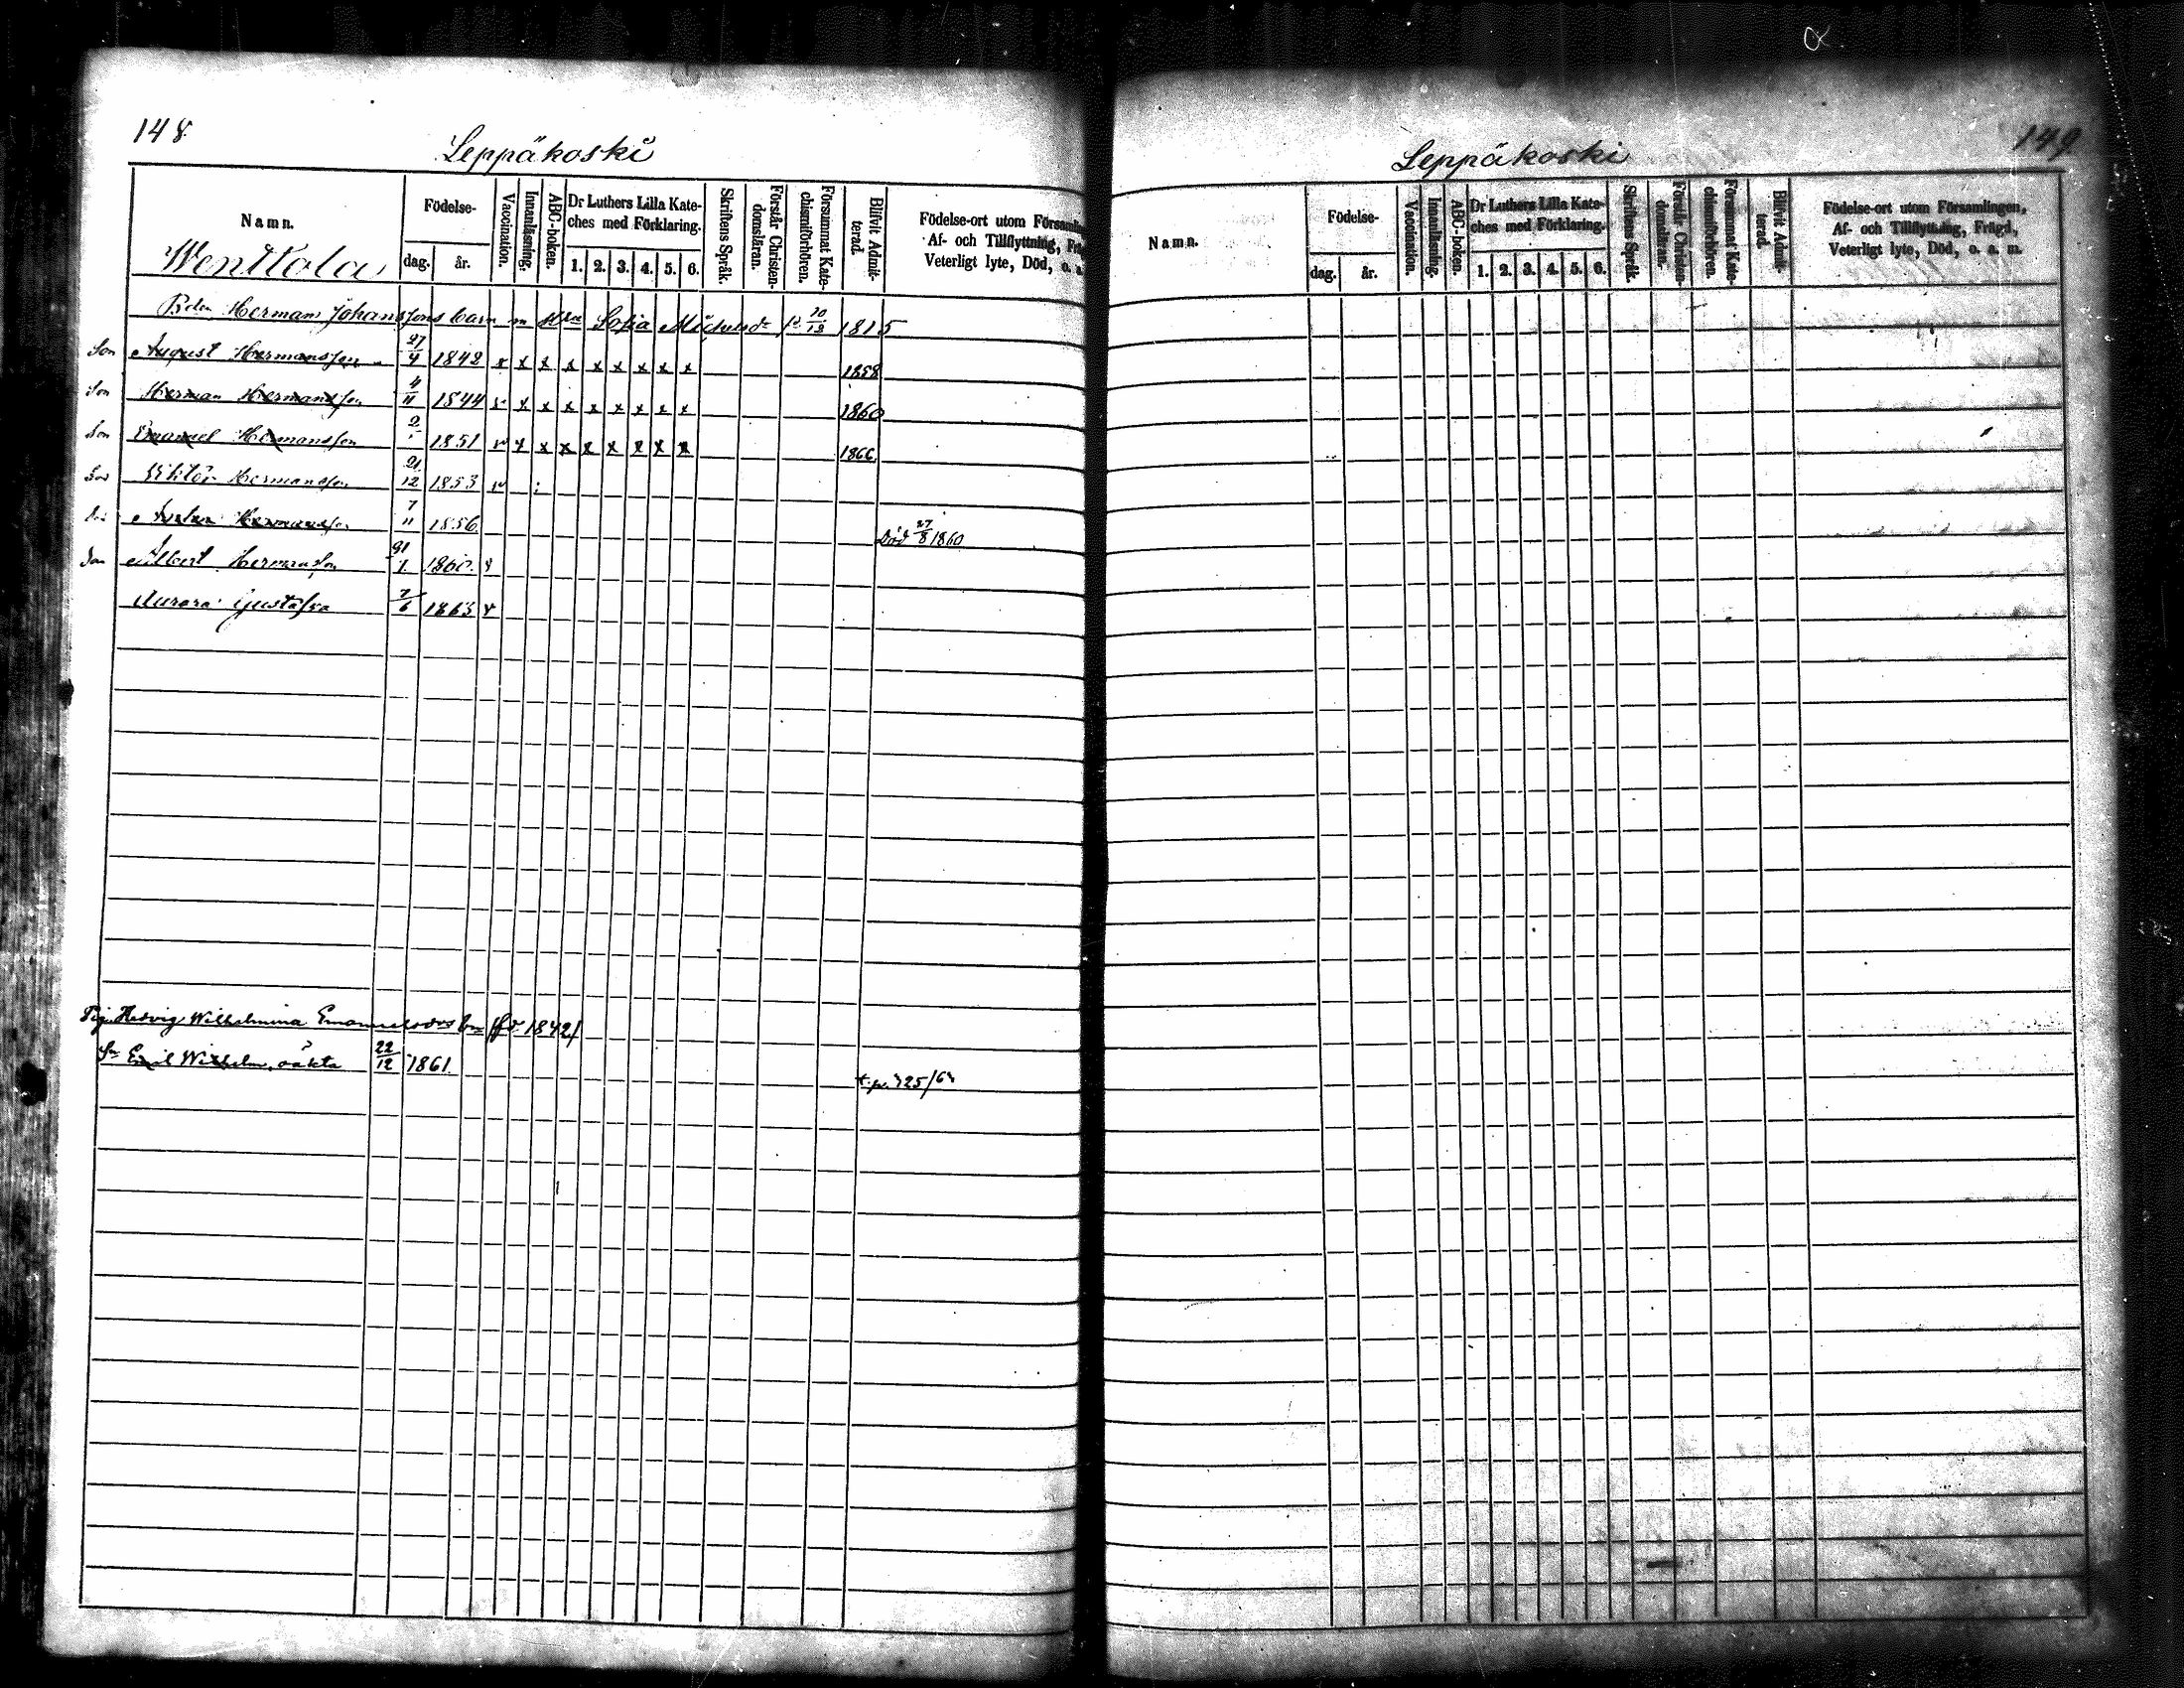 148
Leppäkoski
Namn.
Födelse-
dag.
år.
Vaccination.
Innanläsning.
ABC-boken.
Dr Luthers Lilla Kate-
ches med Förklaring.
1. 2. 3. 4. 5. 6.
Skriftens Språk.
Förstår Christen-
domsläran.
Försummat Kate-
chismiförhören.
Blifvit Admit-
terad.
Födelse-ort utom Församlin
Af- och Tillflyttning, Frä
Veterligt lyte, Död, o. a.
Wenttola
Herman Johanssons barn m Sofia 10/12 1815
Son August Hermansson 27/4 1842 x x x x x x x x 1858
Son Herman Hermansson 4/11 1844 v x x x x x x x x 1860
Son Emanuel Hermansson 2 1851 v x x x x x x x x 1866
Son Viktor Hermansson 21/12 1853 v
Hermansson 7/11 1856 Död 27/8 1860
Son Albert Hermansson 21/1 1860. v
Aurora Gustafva 7/6 1863 v
Pig. Hedvig Wilhelmina Emanuelsdrs bn (fd. 1842)
Sn Emil Wilhelm, oäkta 22/12 1861. t. p. 325/64
149
Leppäkoski
Namn.
Födelse-
dag.
år.
Vaccination.
Innanläsning.
ABC-boken.
Dr Luthers Lilla Kate-
ches med Förklaring.
1. 2. 3. 4. 5. 6.
Skriftens Språk.
Förstår Christen-
domsläran.
Försummat Kate-
chismiförhören.
Blifvit Admit-
terad.
Födelse-ort utom Församlingen,
Af- och Tillflyttning, Frägd,
Veterligt lyte, Död, o. a. m.